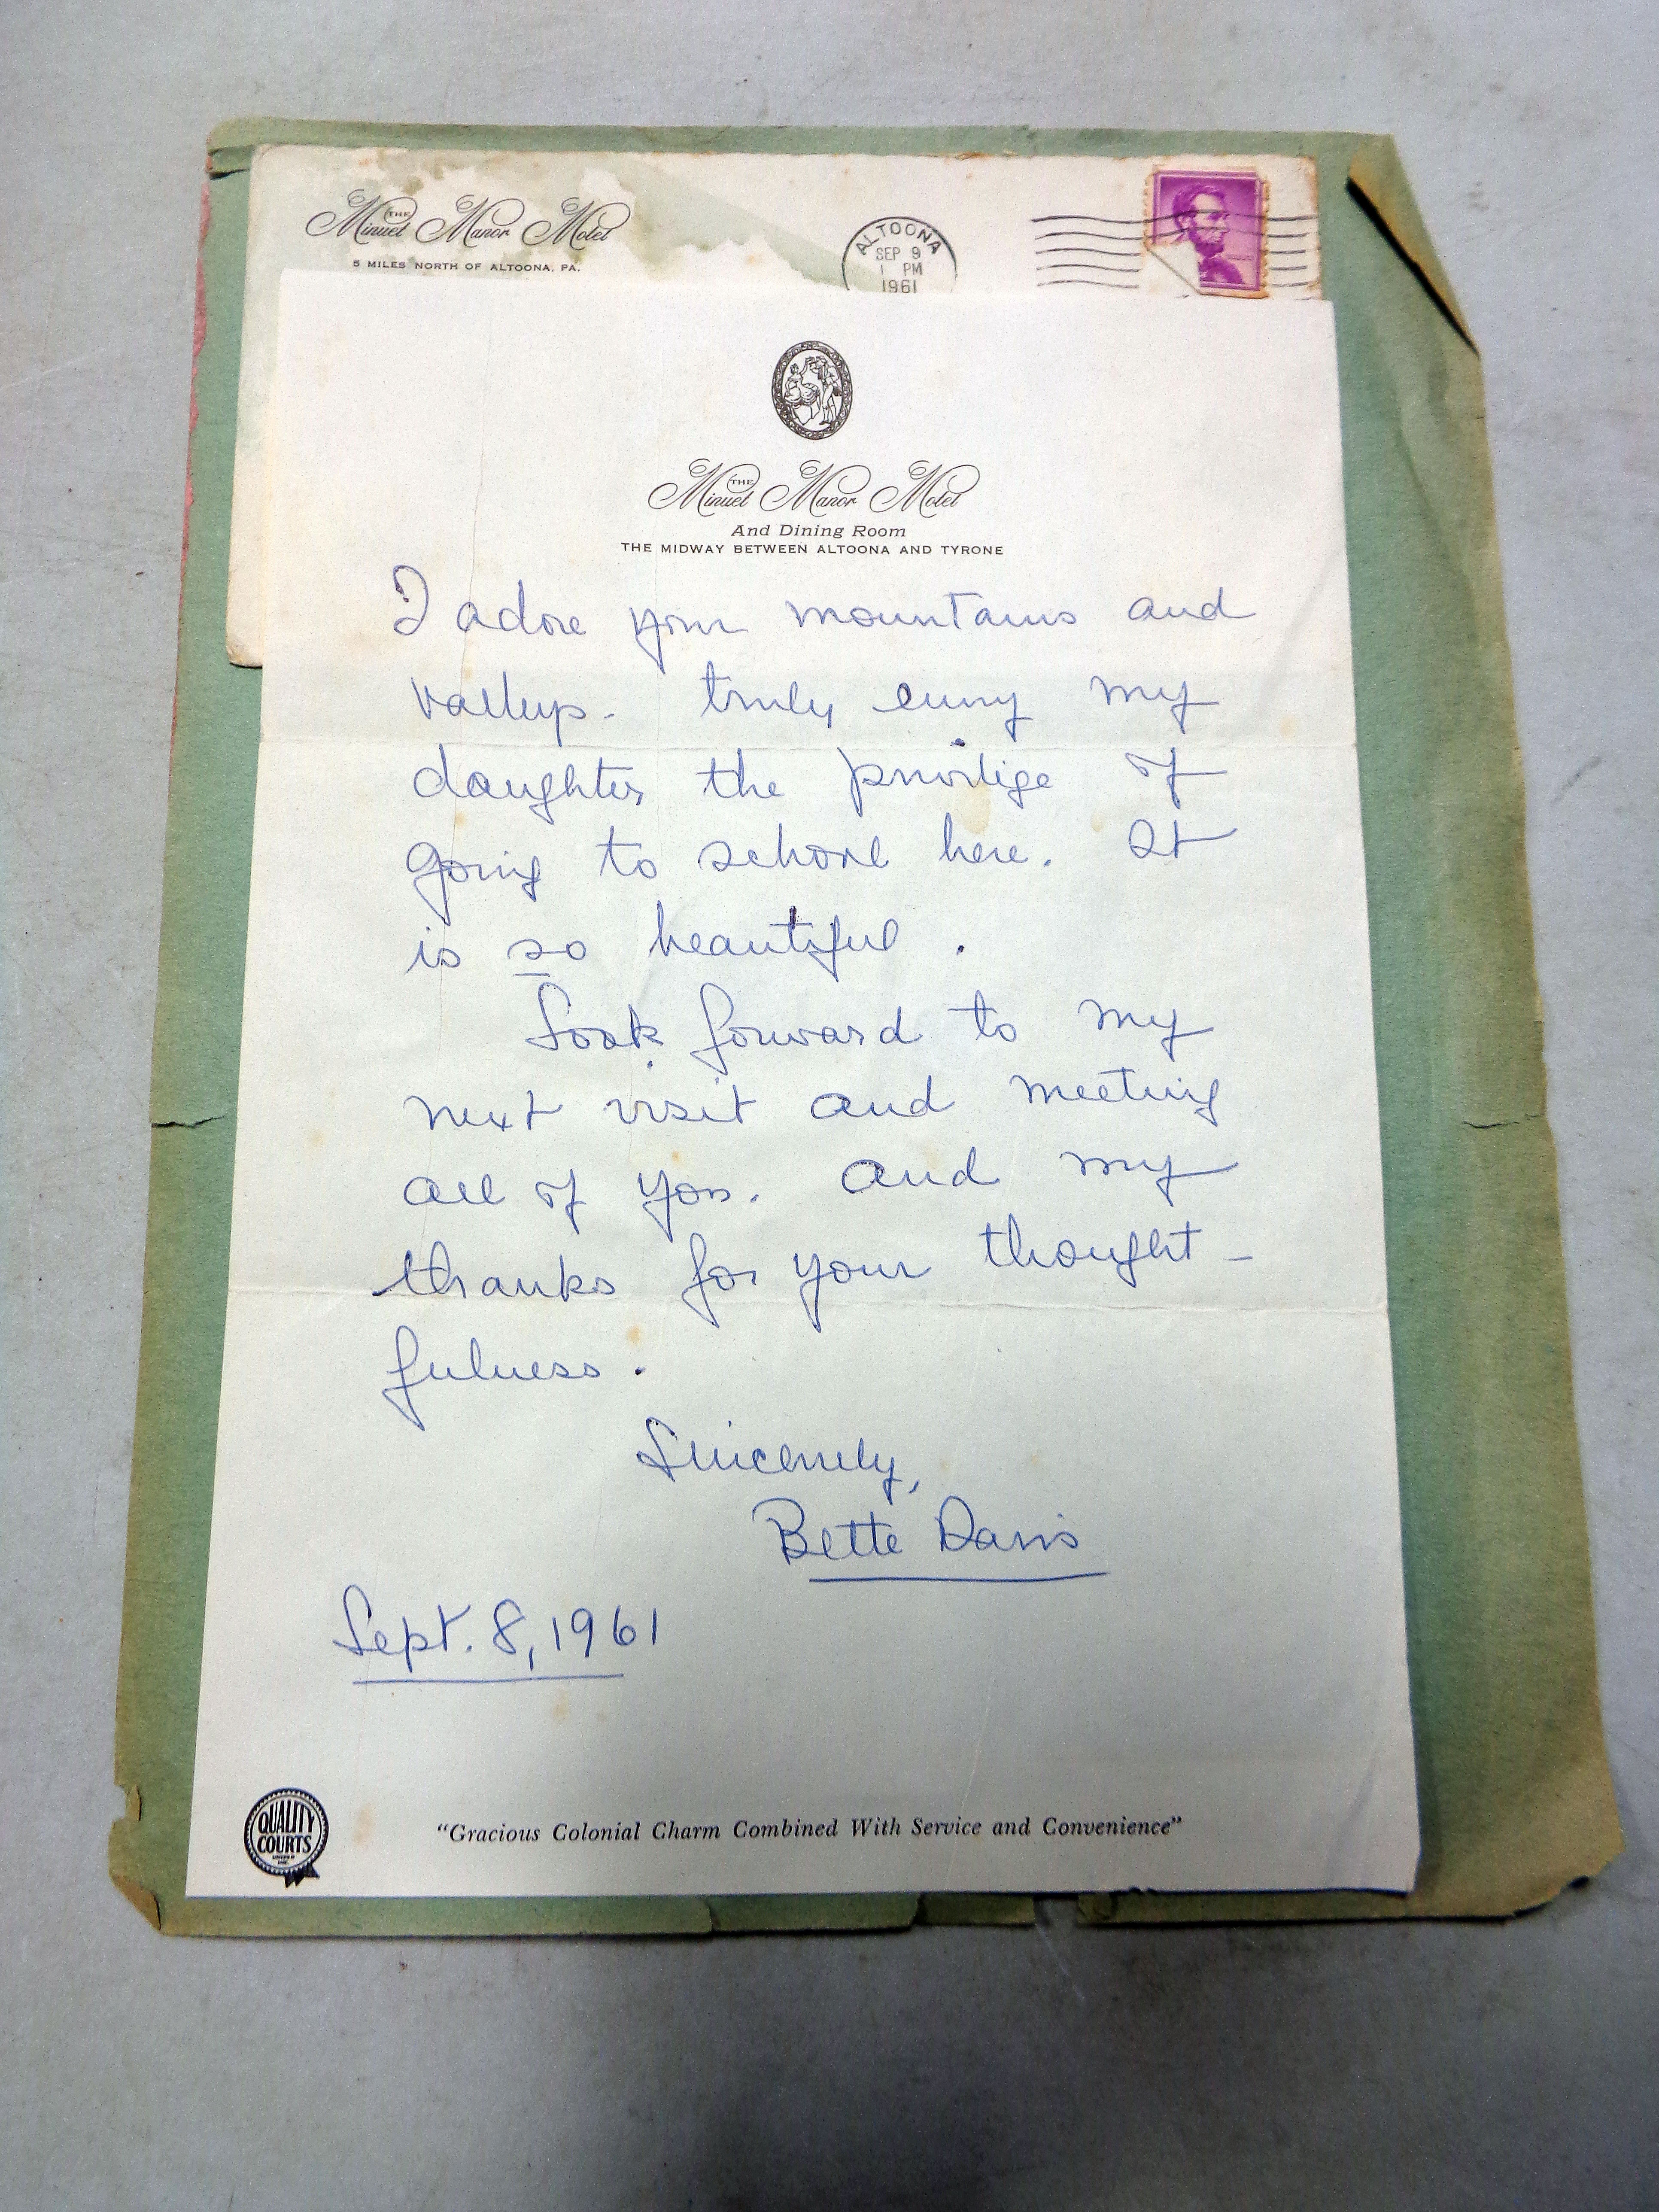 THE
Minuet Manor Motel
5 MILES NORTH OF ALTOONA, PA.
ALTOONA
SEP 9
1 PM
1961
THE
Minuet Manor Motel
And Dining Room
THE MIDWAY BETWEEN ALTOONA AND TYRONE
I adore your mountains and
valleys. truly envy my
daughter the privilige of
going to school here. It
is so beautiful.
Look forward to my
next visit and meeting
all of you. And my
thanks for your thought-
fulness.
Sincerely,
Bette Davis
Sept. 8, 1961
QUALITY
COURTS
"Gracious Colonial Charm Combined With Service and Convenience"